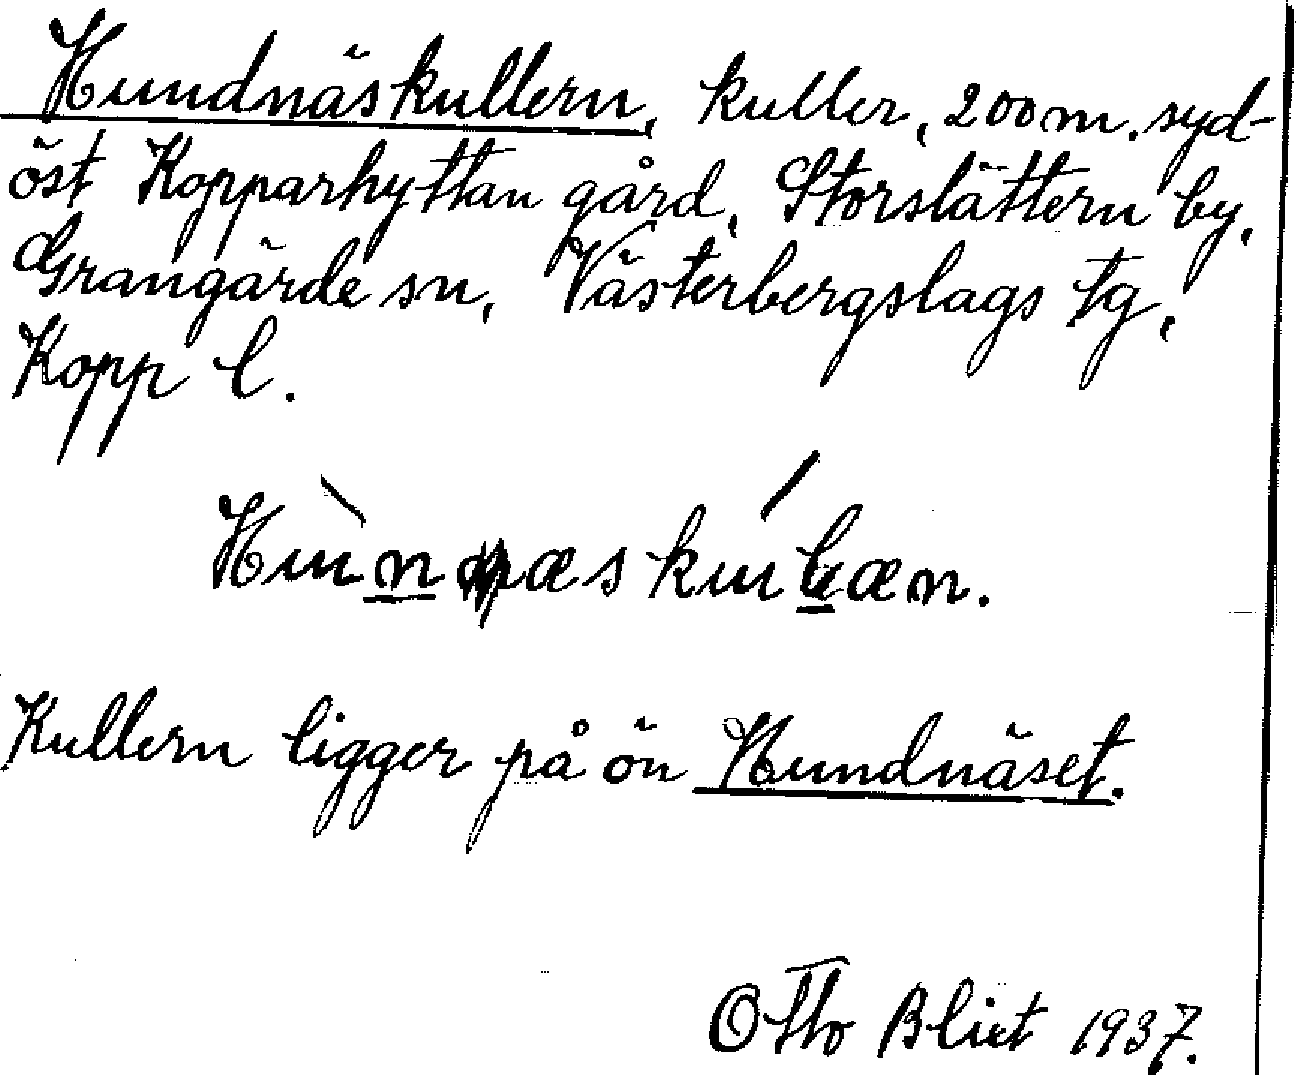 Hundnäskullern, kuller, 200 m. syd-
öst Kopparhyttan gård, Storslättern by,
Grangärde sn, Västerbergslags tg,
Kopp l.
Kullern ligger på ön Hundnäset.
Otto Blixt 1937.